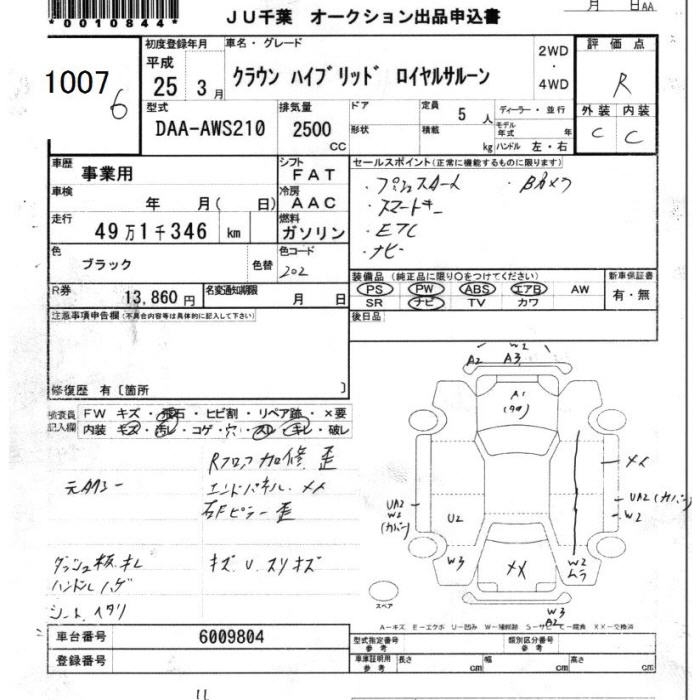 *0010844*
JU千葉 オークション出品申込書
月 日AA
1007
6
初度登録年月
平成
25 3月
車名・グレード
クラウン ハイブリッド ロイヤルサルーン
2WD
・
4WD
評価点
R
外装 内装
C C
型式
DAA-AWS210
排気量
2500
CC
ドア
形状
定員
5 人
積載
kg
ディーラー・並行
モデル年式 年
ハンドル 左・右
車歴
事業用
シフト
FAT
車検
年 月( 日)
冷房
AAC
走行
49万1千346 km
燃料
ガソリン
色
ブラック
色替
色コード
202
R券
13,860円
名変通知期限
月 日
セールスポイント(正常に機能するものに限ります)
・プッシュスタート ・Bカメラ
・スマートキー
・ETC
・ナビ
装備品 (純正品に限り○をつけてください)
PS PW ABS エアB AW
SR ナビ TV カワ
新車保証書
有・無
後日品
注意事項申告欄(不具合内容等は具体的に記入して下さい)
修復歴 有〔箇所 〕
検査員
記入欄
FW キズ・飛石・ヒビ割・リペア跡・×要
内装 キズ・汚レ・コゲ・穴・スレ・キレ・破レ
Rフロア加修 歪
エンドパネル メメ
右Fピラー 歪
ダッシュ板 キレ
キズ U スリキズ
ハンドル ハゲ
シート ヘタリ
W2
A2 A3
A1
メメ
UA2
W2
(カバー)
U2
UA2(カバー)
W2
W3
メメ
W2
ムラ
W3
A2
スペア
A-キズ E-エクボ U-凹み W-補修跡 S-サビ C-腐食 XX-交換済
車台番号
6009804
登録番号
型式指定番号
参考
類別区分番号
参考
車庫証明用
参考
長さ cm
幅 cm
高さ cm